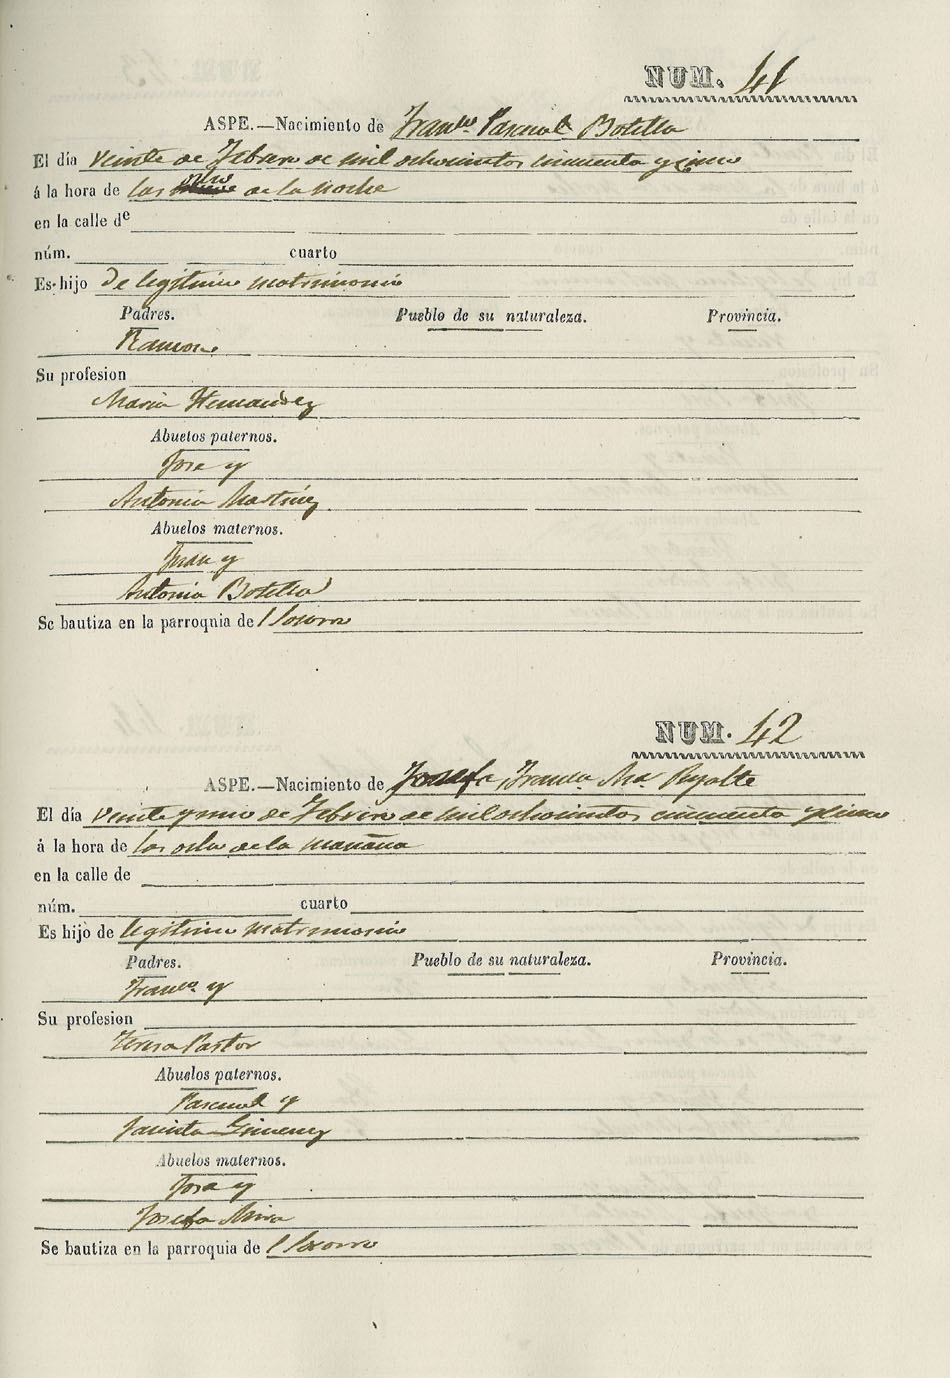 NUM. 41
ASPE.—Nacimiento de Franco. Pascual Botella
El día veinte de Febrero de mil ochocientos cincuenta y cinco
á la hora de las de la noche
en la calle de
núm. cuarto
Es hijo de legitimo matrimonio
Padres. Pueblo de su naturaleza. Provincia.
Ramon
Su profesion
Maria Hernandez
Abuelos paternos.
Jose y
Antonia Martinez
Abuelos maternos.
Juan y
Antonia Botella
Se bautiza en la parroquia de l Socorro
NUM. 42
ASPE.—Nacimiento de Josefa Franca. Ma.
El día veinte y uno de Febrero de mil ochocientos cincuenta y cinco
á la hora de las ocho de la mañana
en la calle de
núm. cuarto
Es hijo de legitimo matrimonio
Padres. Pueblo de su naturaleza. Provincia.
Franco. y
Su profesion
Teresa Pastor
Abuelos paternos.
Pascual y
Jacinta Gimenez
Abuelos maternos.
Jose y
Josefa Mira
Se bautiza en la parroquia de l Socorro